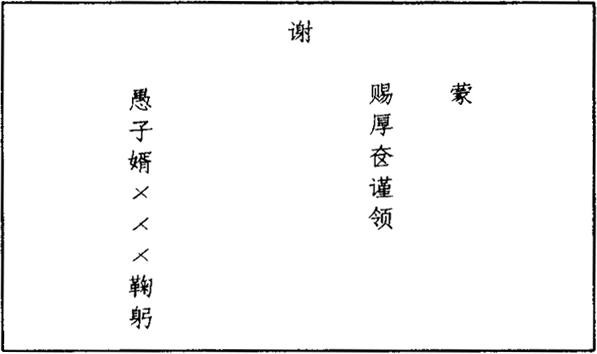 蒙
赐厚奁谨领
谢
愚子婿×××鞠躬